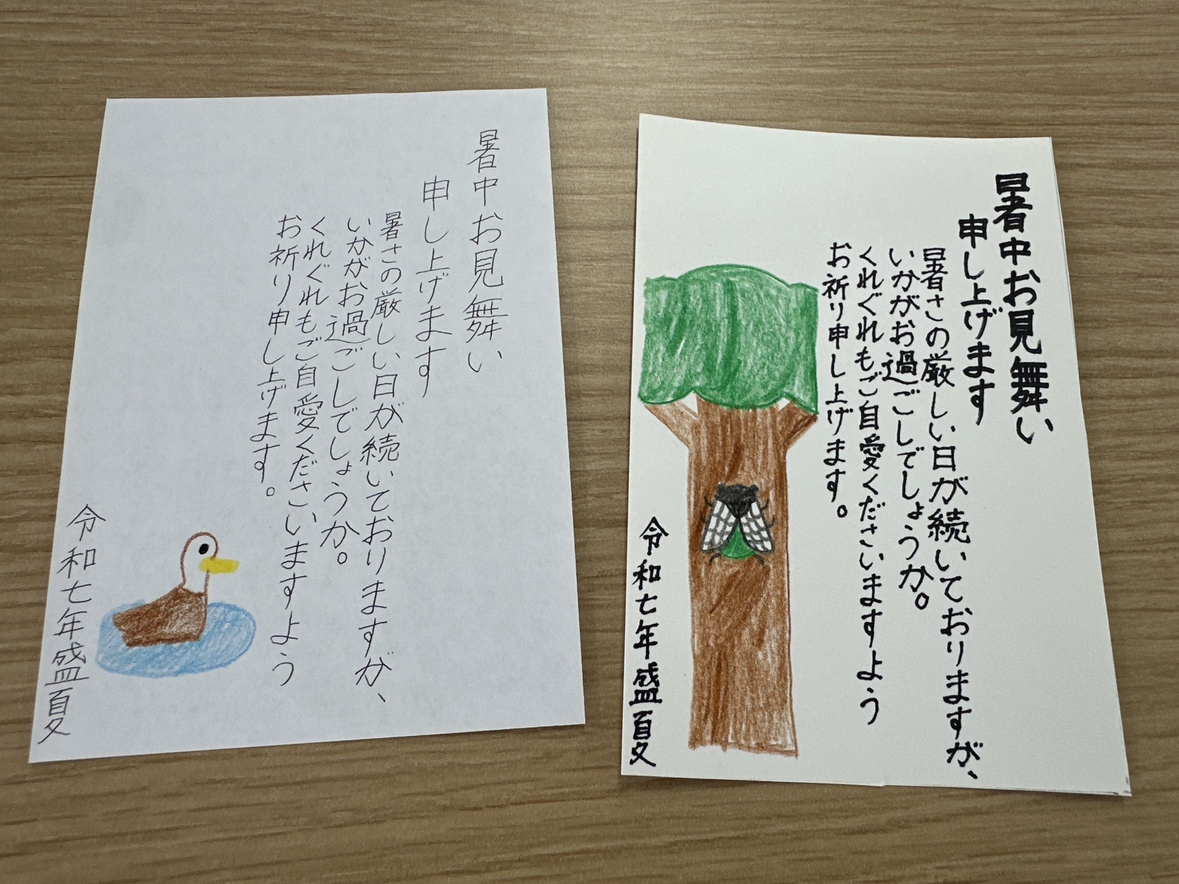 暑中お見舞い
申し上げます
暑さの厳しい日が続いておりますが、
いかがお過ごしでしょうか。
くれぐれもご自愛くださいますよう
お祈り申し上げます。
令和七年盛夏
暑中お見舞い
申し上げます
暑さの厳しい日が続いておりますが、
いかがお過ごしでしょうか。
くれぐれもご自愛くださいますよう
お祈り申し上げます。
令和七年盛夏